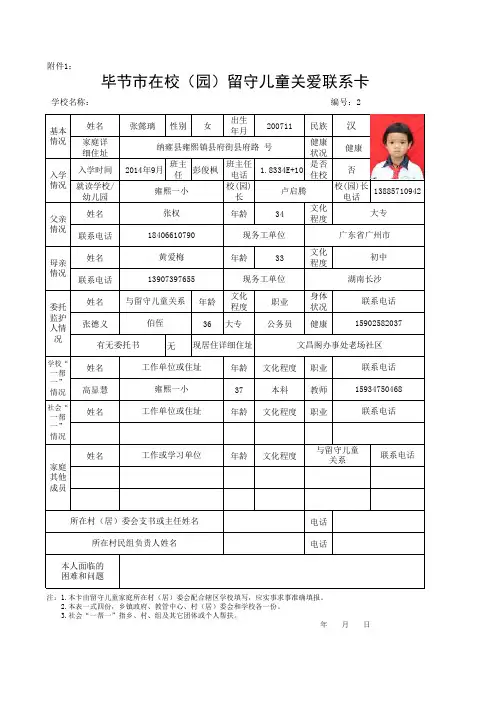 附件1:
毕节市在校（园）留守儿童关爱联系卡
学校名称: 编号: 2
基本情况 姓名 张懿璃 性别 女 出生年月 200711 民族 汉
家庭详细住址 纳雍县雍熙镇县府街县府路 号 健康状况 健康
入学情况 入学时间 2014年9月 班主任 彭俊枫 班主任电话 1.8334E+10 是否住校 否
就读学校/幼儿园 雍熙一小 校(园)长 卢启腾 校(园)长电话 13885710942
父亲情况 姓名 张权 年龄 34 文化程度 大专
联系电话 18406610790 现务工单位 广东省广州市
母亲情况 姓名 黄爱梅 年龄 33 文化程度 初中
联系电话 13907397655 现务工单位 湖南长沙
委托监护人情况 姓名 与留守儿童关系 年龄 文化程度 职业 身体状况 联系电话
张德义 伯侄 36 大专 公务员 健康 15902582037
有无委托书 无 现居住详细住址 文昌阁办事处老场社区
学校“一帮一”情况 姓名 工作单位或住址 年龄 文化程度 职业 联系电话
高显慧 雍熙一小 37 本科 教师 15934750468
社会“一帮一”情况 姓名 工作单位或住址 年龄 文化程度 职业 联系电话
家庭其他成员 姓名 工作或学习单位 年龄 文化程度 与留守儿童关系 联系电话
所在村（居）委会支书或主任姓名 电话
所在村民组负责人姓名 电话
本人面临的困难和问题
注: 1.本卡由留守儿童家庭所在村（居）委会配合辖区学校填写，应实事求事准确填报。
2.本表一式四份，乡镇政府、教管中心、村（居）委会和学校各一份。
3.社会“一帮一”指乡、村、组及其它团体或个人帮扶。
年 月 日